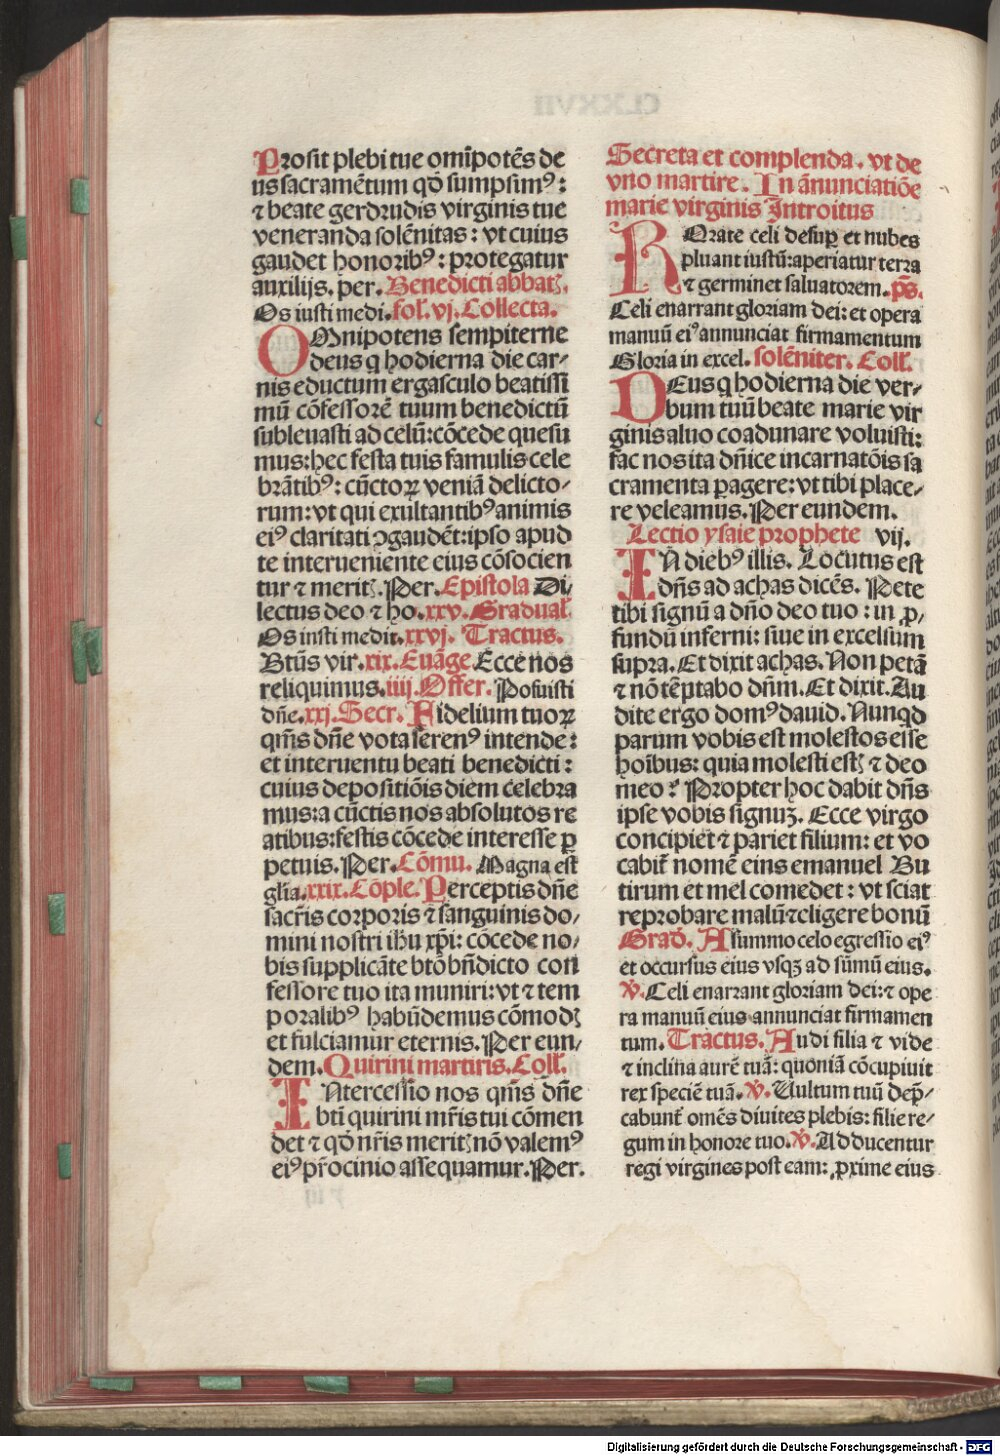 Prosit plebi tue om̄ipotēs de
us sacramētum qđ sumpsimꝰ:
⁊ beate gerdrudis virginis tue
veneranda solēnitas: vt cuius
gaudet honoribꝰ: protegatur
auxilijs. per. Benedicti abbatꝭ.
Os iusti medi. fol. vj. Collecta.
OMnipotens sempiterne
deus q hodierna die car⸗
nis eductum ergasculo beatissi
mū cōfessorē tuum benedictū
subleuasti ad celū: cōcede quesu
mus: hec festa tuis famulis cele
brātibꝰ: cūctoꝝ veniā delicto⸗
rum: vt qui exultantibꝰ animis
eiꝰ claritati ꝯgaudēt: ipso apud
te interueniente eius cōsocien
tur ⁊ meritꝭ. Per. Epistola Di⸗
lectus deo ⁊ ho. xxv. Gradual.
Os iusti medit. xxvj. Tractus.
Btūs vir. xix. Euāge. Ecce nos
reliquimus. iiij. Offer. Posuisti
dn̄e. xxj. Secr. Fidelium tuoꝝ
qm̄s dn̄e vota serenꝰ intende:
et interuentu beati benedicti:
cuius depositiōis diem celebra
mus: a cūctis nos absolutos re
atibus: festis cōcede interesse ꝑ
petuis. Per. Cōmu. Magna est
glīa. xxix. Cōple. Perceptis dn̄e
sacrīs corporis ⁊ sanguinis do⸗
mini nostri ihū xp̄i: cōcede no⸗
bis supplicāte btō bn̄dicto con
fessore tuo ita muniri: vt ⁊ tem
poralibꝰ habūdemus cōmodꝭ
et fulciamur eternis. Per eun⸗
dem. Quirini martiris. Coll.
INtercessio nos qm̄s dn̄e
btī quirini mr̄is tui cōmen
det ⁊ qđ nr̄is meritꝭ nō valemꝰ
eiꝰ pr̄ocinio assequamur. Per.
Secreta et complenda. vt de
vno martire. In ānunciatiōe
marie virginis Introitus
ROrate celi desuꝑ et nubes
pluant iustū: aperiatur terra
⁊ germinet saluatorem. p̄s.
Celi enarrant gloriam dei: et opera
manuū eiꝰ annunciat firmamentum
Gloria in excel. solēniter. Coll.
DEus q hodierna die ver⸗
bum tuū beate marie vir
ginis aluo coadunare voluisti:
fac nos ita dn̄ice incarnatōis sa
cramenta ꝑagere: vt tibi place⸗
re veleamus. Per eundem.
Lectio ysaie prophete vij.
IN diebꝰ illis. Locutus est
dn̄s ad achas dicēs. Pete
tibi signū a dn̄o deo tuo: in ꝓ⸗
fundū inferni: siue in excelsum
supra. Et dixit achas. Non petā
⁊ nō tēptabo dn̄m. Et dixit. Au
dite ergo domꝰ dauid. Nunqđ
parum vobis est molestos esse
hoībus: quia molesti estꝭ ⁊ deo
meo? Propter hoc dabit dn̄s
ipse vobis signuꝫ. Ecce virgo
concipiet ⁊ pariet filium: et vo
cabit̄ nomē eius emanuel Bu
tirum et mel comedet: vt sciat
reprobare malū ⁊ eligere bonū
Grad. A summo celo egressio eiꝰ
et occursus eius vsqꝫ ad sūmū eius.
℣. Celi enarrant gloriam dei: ⁊ ope
ra manuū eius annunciat firmamen
tum. Tractus. Audi filia ⁊ vide
⁊ inclina aurē tuā: quoniā cōcupiuit
rex speciē tuā. ℣. Uultum tuū dep̄⸗
cabunt̄ omēs diuites plebis: filie re⸗
gum in honore tuo. ℣. Adducentur
regi virgines post eam: ꝓxime eius
Digitalisierung gefördert durch die Deutsche Forschungsgemeinschaft - DFG